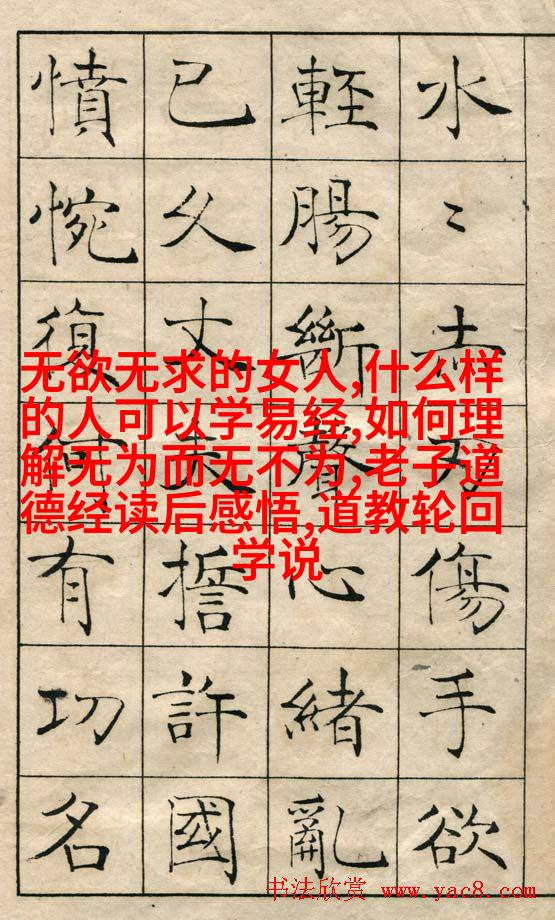 水〻赤刃傷手欲
輕腸斷聲心緒亂
已久丈夫誓許國
憤惋復何有功名
无欲无求的女人,什么样
的人可以学易经,如何理
解无为而无不为,老子道
德经读后感悟,道教轮回
学说
书法欣赏 www.yac8.com